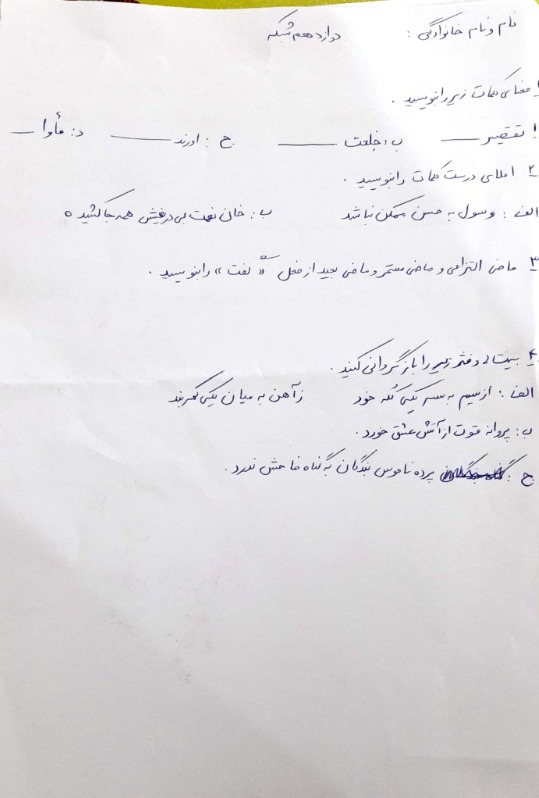 نام و نام خانوادگی : دوازدهم شبکه
۱ معنای کلمات زیر را بنویسید .
ا تقصیر ــــ ب : خلعت ــــ ج : اورند ــــ د : مأوا ــــ
۲ املای درست کلمات را بنویسید .
الف : وسول به حسن ممکن نباشد ب : خان نعمت بی دریغش همه جا کشیده
۳ ماضی التزامی و ماضی مستمر و ماضی بعید از فعل « گفت » را بنویسید .
۴ بیت و زیر را بازگردانی کنید .
الف : از سیم به سر یکی کُله خود ز آهن به میان یکی کمربند
ب : پروانه قوت از آتش عشق خورد .
ج : پرده ناموس بندگان به گناه فاحش ندرد .